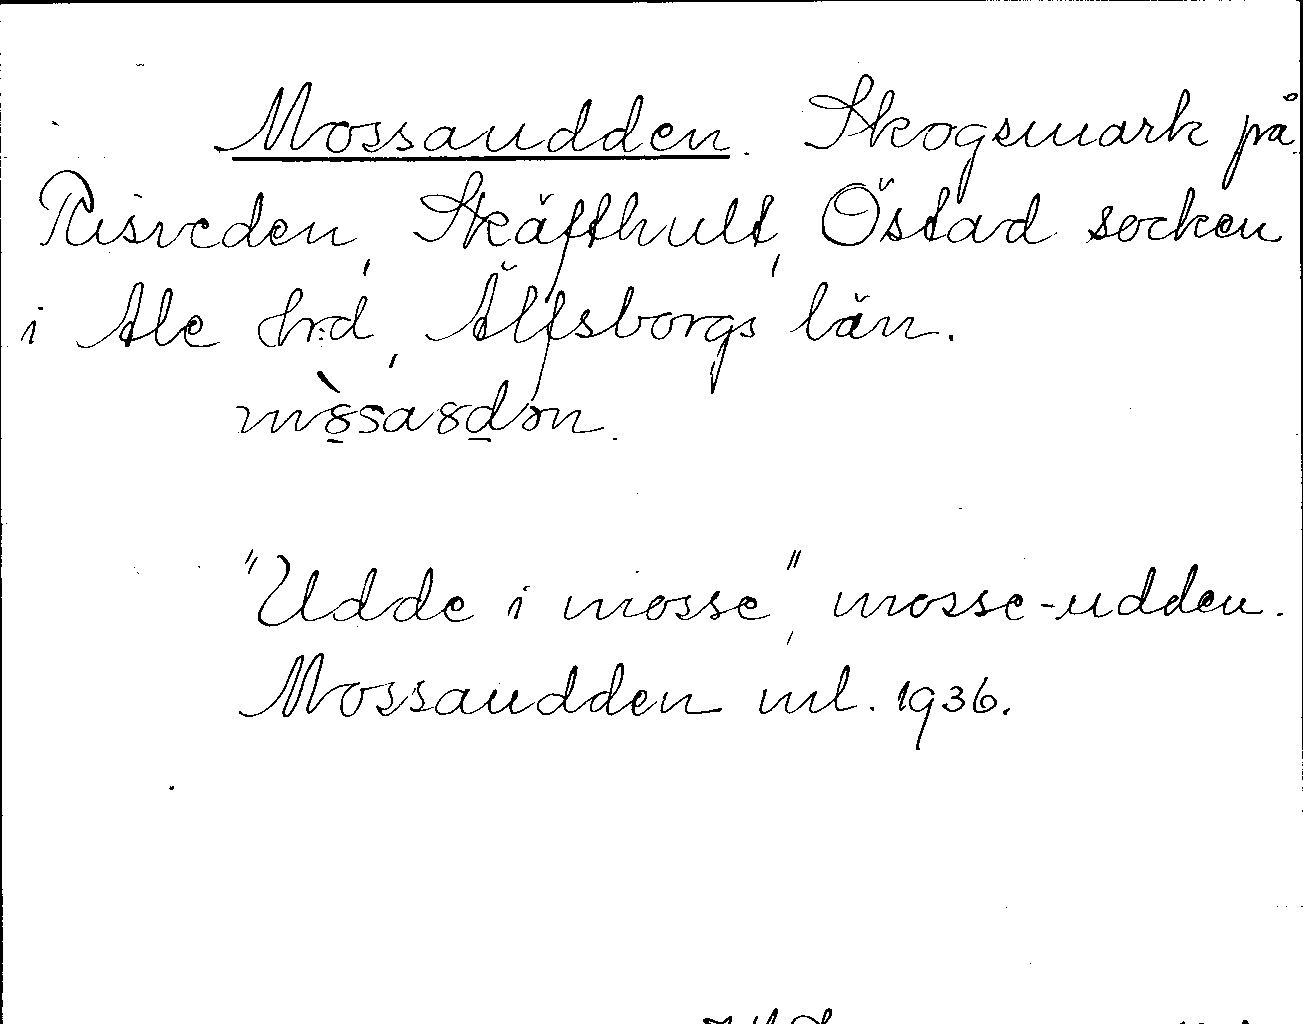 Mossaudden. Skogsmark på
Risveden, Skäfthult, Östad socken
i Ale hrd, Älfsborgs län.
"Udde i mosse", mosse-udden.
Mossaudden ml. 1936.